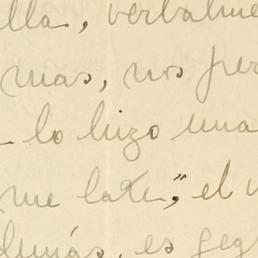 lla, verbalme
mas, nos per
lo hizo una
me late", el
demás, es seg